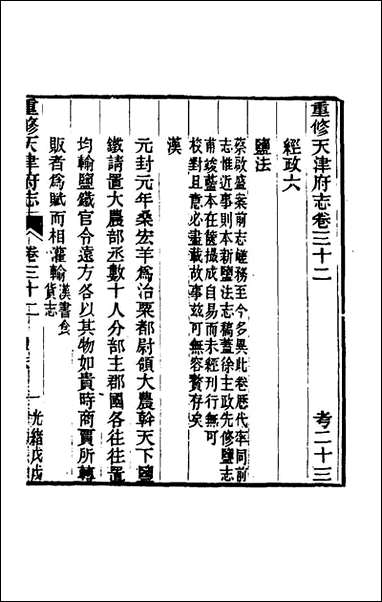 重修天津府志卷三十二　考二十三
經政六
鹽法
蔡啟盛案前志鹺務至今多異此卷歷代率同前
志惟近事則本新鹽法志稿蓋徐主政先修鹽志
甫竣藍本在篋撮成自易而未經刊行無可
校對且意必盡載故事茲可無容贅存矣
漢
元封元年桑宏羊為治粟都尉領大農幹天下鹽
鐵請置大農部丞數十人分部主郡國各往往置
均輸鹽鐵官令遠方各以其物如貴時商賈所轉
販者為賦而相灌輸漢書食
貨志
重修天津府志　卷三十二　一　光緒戊戌